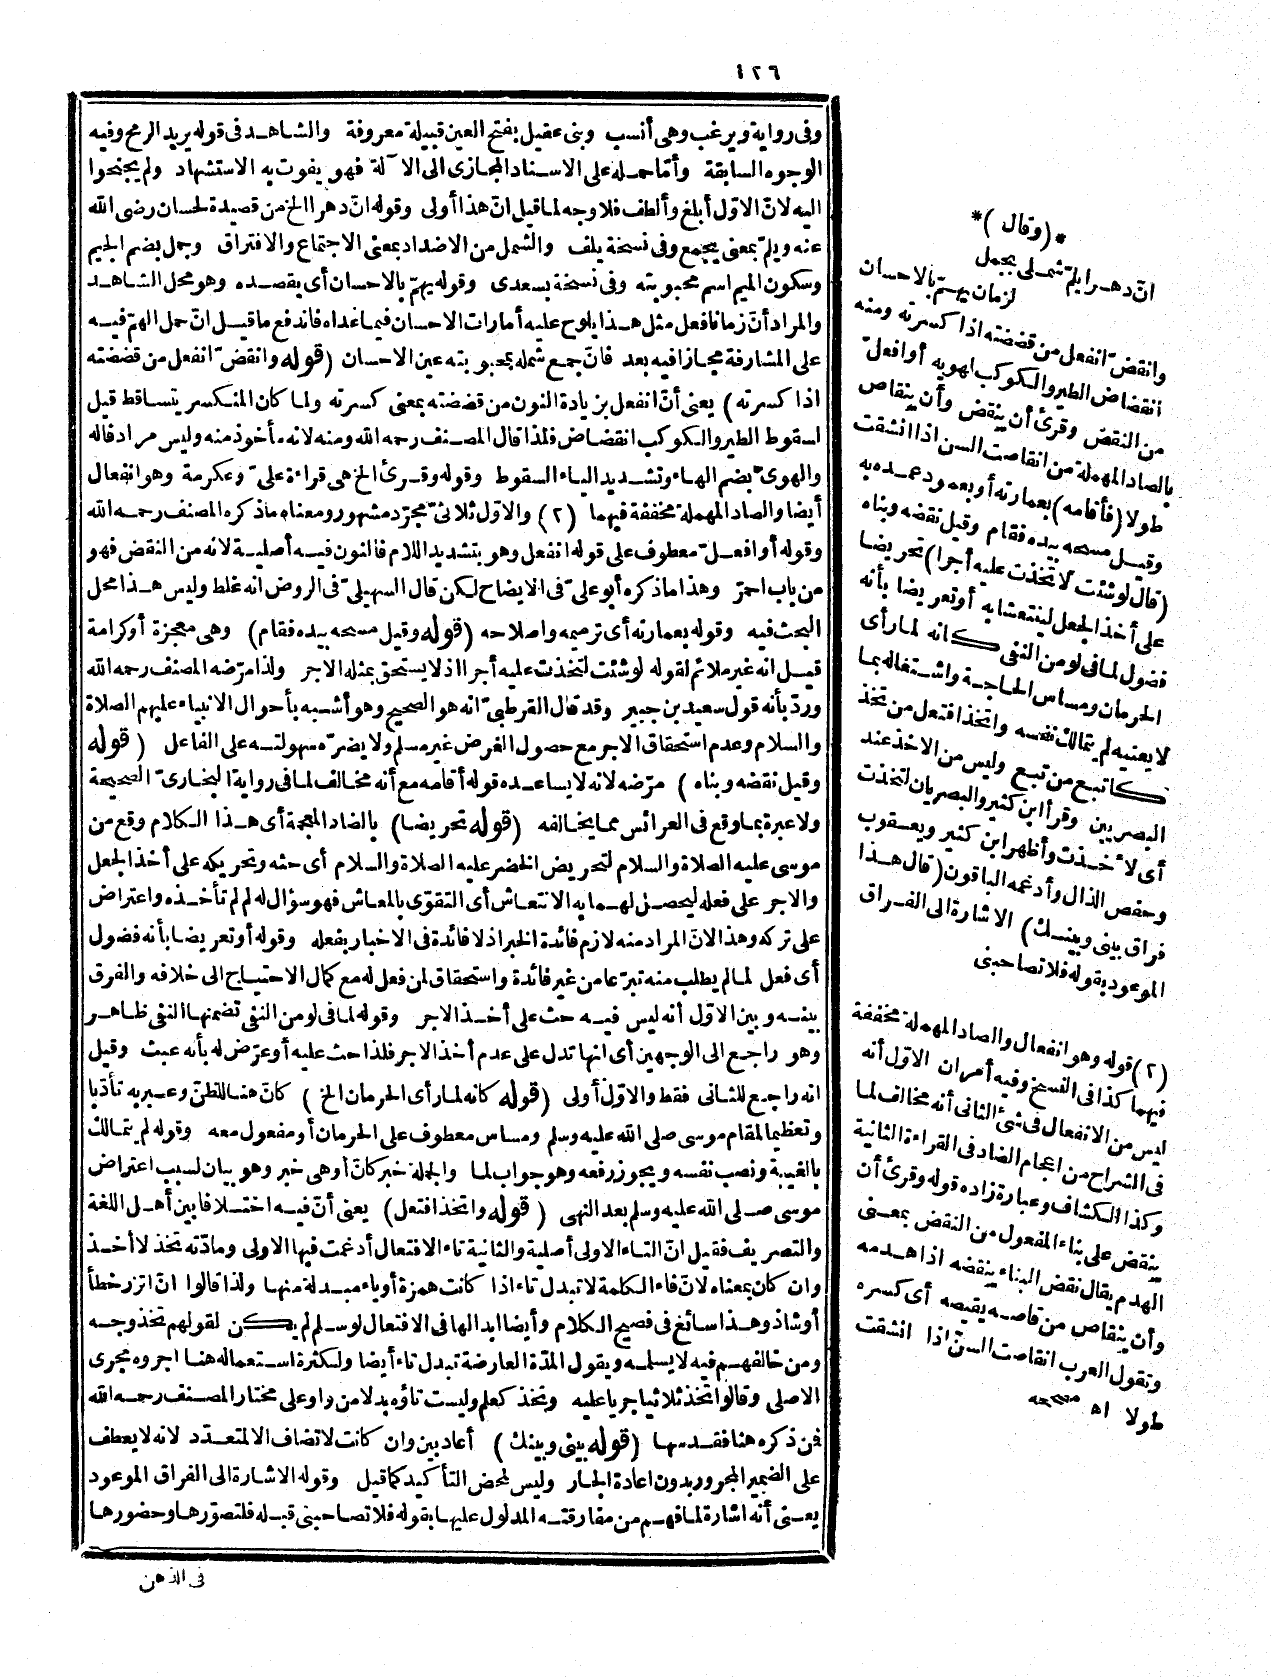 ١٢٦
وفى رواية ويرغب وهى أنسب وبنى عقيل بفتح العين قبيلة معروفة والشاهد فى قوله يريد الرمح وفيه
الوجوه السابقة وأمّا حمله على الاسناد المجازى الى الآلة فهو يفوت به الاستشهاد ولم يجنحوا
اليه لانّ الاوّل أبلغ وألطف فلا وجه لما قيل انّ هذا أولى وقوله انّ دهرا الخ من قصيدة لحسان رضى الله
عنه ويلمّ بمعنى يجمع وفى نسخة يلف والشمل من الاضداد بمعنى الاجتماع والافتراق وجمل بضم الجيم
وسكون الميم اسم محبوبته وفى نسخة بسعدى وقوله يهمّ بالاحسان أى يقصده وهو محل الشاهد
والمراد أنّ زمانا فعل مثل هذا يلوح عليه أمارات الاحسان فيما عداه فاندفع ما قيل انّ حمل الهمّ فيه
على المشارفة مجازا فيه بعد فانّ جمع شمله بمحبوبته عين الاحسان (قوله وانقضّ انفعل من قضضته
اذا كسرته) يعنى أنّ انفعل بزيادة النون من قضضته بمعنى كسرته ولما كان المنكسر يتساقط قيل
لسقوط الطير والكوكب انقضاض فلذا قال المصنف رحمه الله ومنه لانه مأخوذ منه وليس مراد قاله
والهوىّ بضم الهاء وتشديد الياء السقوط وقوله وقرئ الخ هى قراءة علىّ وعكرمة وهو انفعال
أيضا والصاد المهملة مخففة فيهما (٢) والاوّل ثلاثىّ مجرّد مشهور ومعناه ما ذكره المصنف رحمه الله
وقوله أو افعلّ معطوف على قوله انفعل وهو بتشديد اللام فالنون فيه أصلية لانه من النقض فهو
من باب احمرّ وهذا ما ذكره أبو علىّ فى الايضاح لكن قال السهيلىّ فى الروض انه غلط وليس هذا محل
البحث فيه وقوله بعمارته أى ترميمه واصلاحه (قوله وقيل مسحه بيده فقام) وهى معجزة أو كرامة
قيل انه غير ملائم لقوله لو شئت لتخذت عليه أجرا اذ لا يستحق بمثله الاجر ولذا مرّضه المصنف رحمه الله
وردّ بأنه قول سعيد بن جبير وقد قال القرطبىّ انه هو الصحيح وهو أشبه بأحوال الانبياء عليهم الصلاة
والسلام وعدم استحقاق الاجر مع حصول الغرض غير مسلم ولا يضرّه سهولته على الفاعل (قوله
وقيل نقضه وبناه) مرّضه لانه لا يساعده قوله أقامه مع أنه مخالف لما فى رواية البخارىّ الصحيحة
ولا عبرة بما وقع فى العرائس مما يخالفه (قوله تحريضا) بالضاد المعجمة أى هذا الكلام وقع من
موسى عليه الصلاة والسلام لتحريض الخضر عليه الصلاة والسلام أى حثه وتحريكه على أخذ الجعل
والاجر على فعله ليحصل لهما به الانتعاش أى التقوّى بالمعاش فهو سؤال له لم لم تأخذه واعتراض
على تركه وهذا لانّ المراد منه لازم فائدة الخبر اذ لا فائدة فى الاخبار بفعله وقوله أو تعريضا بأنه فضول
أى فعل لما لم يطلب منه تبرّعا من غير فائدة واستحقاق لمن فعل له مع كمال الاحتياج الى خلافه والفرق
بينه وبين الاوّل أنه ليس فيه حث على أخذ الاجر وقوله لما فى لو من النفى تضمنها النفى ظاهر
وهو راجع الى الوجهين أى انها تدل على عدم أخذ الاجر فلذا حث عليه أو عرّض له بأنه عبث وقيل
انه راجع للثانى فقط والاوّل أولى (قوله كانه لما رأى الحرمان الخ) كانّ هنا للظنّ وعبر به تأدّبا
وتعظيما لمقام موسى صلى الله عليه وسلم ومساس معطوف على الحرمان أو مفعول معه وقوله لم يتمالك
بالغيبة ونصب نفسه ويجوز رفعه وهو جواب لما والجملة خبر كانّ أو هى خبر وهو بيان لسبب اعتراض
موسى صلى الله عليه وسلم بعد النهى (قوله واتخذ افتعل) يعنى أنّ فيه اختلافا بين أهل اللغة
والتصريف فقيل انّ التاء الاولى أصلية والثانية تاء الافتعال أدغمت فيها الاولى ومادّته تخذ لا أخذ
وان كان بمعناه لانّ فاء الكلمة لا تبدل تاء اذا كانت همزة أو ياء مبدلة منها ولذا قالوا انّ اتزر خطأ
أو شاذ وهذا سائغ فى فصيح الكلام وأيضا ابدالها فى الافتعال لو سلم لم يكن لقولهم تخذ وجه
ومن خالفهم فيه لا يسلمه ويقول المدّة العارضة تبدل تاء أيضا ولكثرة استعماله هنا اجروه مجرى
الاصلى وقالوا تخذ ثلاثيا جريا عليه وتخذ كعلم وليست تاؤه بدلا من واو على مختار المصنف رحمه الله
فمن ذكره هنا فقد سها (قوله بينى وبينك) أعاد بين وان كانت لا تضاف الا لمتعدّد لانه لا يعطف
على الضمير المجرور بدون اعادة الجار وليس لمحض التأكيد كما قيل وقوله الاشارة الى الفراق الموعود
يعنى أنه اشارة لما فهم من مفارقته المدلول عليها بقوله فلا تصاحبنى قبله فلتصوّرها وحضورها
فى الذهن
*(وقال)*
انّ دهرا يلمّ شملى بجمل
لزمان يهمّ بالاحسان
وانقضّ انفعل من قضضته اذا كسرته ومنه
انقضاض الطير والكوكب لهويه أو افعلّ
من النقض وقرئ أن ينقض وأن ينقاص
بالصاد المهملة من انقاصت السن اذا انشقت
طولا (فأقامه) بعمارته أو بعمود عمده به
وقيل مسحه بيده فقام وقيل نقضه وبناه
(قال لو شئت لاتخذت عليه أجرا) تحريضا
على أخذ الجعل لينتعشا به أو تعريضا بأنه
فضول لما فى لو من النفى كانه لما رأى
الحرمان ومساس الحاجة واشتغاله بما
لا يعنيه لم يتمالك نفسه واتخذ افتعل من تخذ
كاتبع من تبع وليس من الاخذ عند
البصريين وقرأ ابن كثير والبصريان لتخذت
أى لأخذت وأظهر ابن كثير ويعقوب
وحفص الذال وأدغمه الباقون (قال هذا
فراق بينى وبينك) الاشارة الى الفراق
الموعود بقوله فلا تصاحبنى
(٢) قوله وهو انفعال والصاد المهملة مخففة
فيهما كذا فى النسخ وفيه أمران الاوّل أنه
ليس من الانفعال فى شئ الثانى أنه مخالف لما
فى الشراح من اعجام الضاد فى القراءة الثانية
وكذا الكشاف وعبارة زاده قوله وقرئ أن
ينقض على بناء المفعول من النقض بمعنى
الهدم يقال نقض البناء ينقضه اذا هدمه
وأن ينقاص من قاصه يقيصه أى كسره
وتقول العرب انقاصت السنّ اذا انشقت
طولا اه مصححه